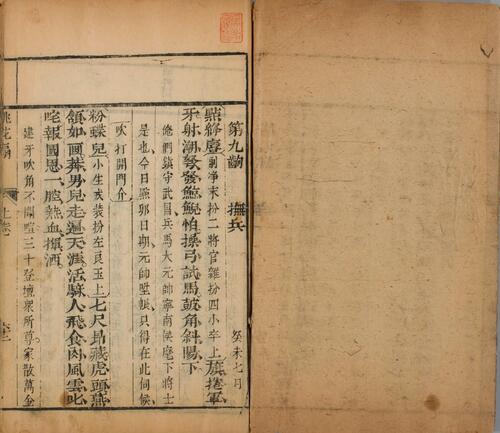 第九齣　撫兵　癸未七月
點絳唇副淨末扮二將官雜扮四小卒上旗捲軍
牙射潮弩發鯨鯢怕操弓試馬鼓角斜陽下
俺們鎮守武昌兵馬大元帥寧南侯麾下將士
是也今日點卯日期元帥陞帳只得在此伺候
吹打開門介
粉蝶兒小生戎裝扮左良玉上七尺昂藏虎頭燕
頷如畫莽男兒走遍天涯活騎人飛食肉風雲叱
咤報國恩一腔熱血揮洒
建牙吹角不聞喧三十登壇衆所尊家散萬金
桃花扇